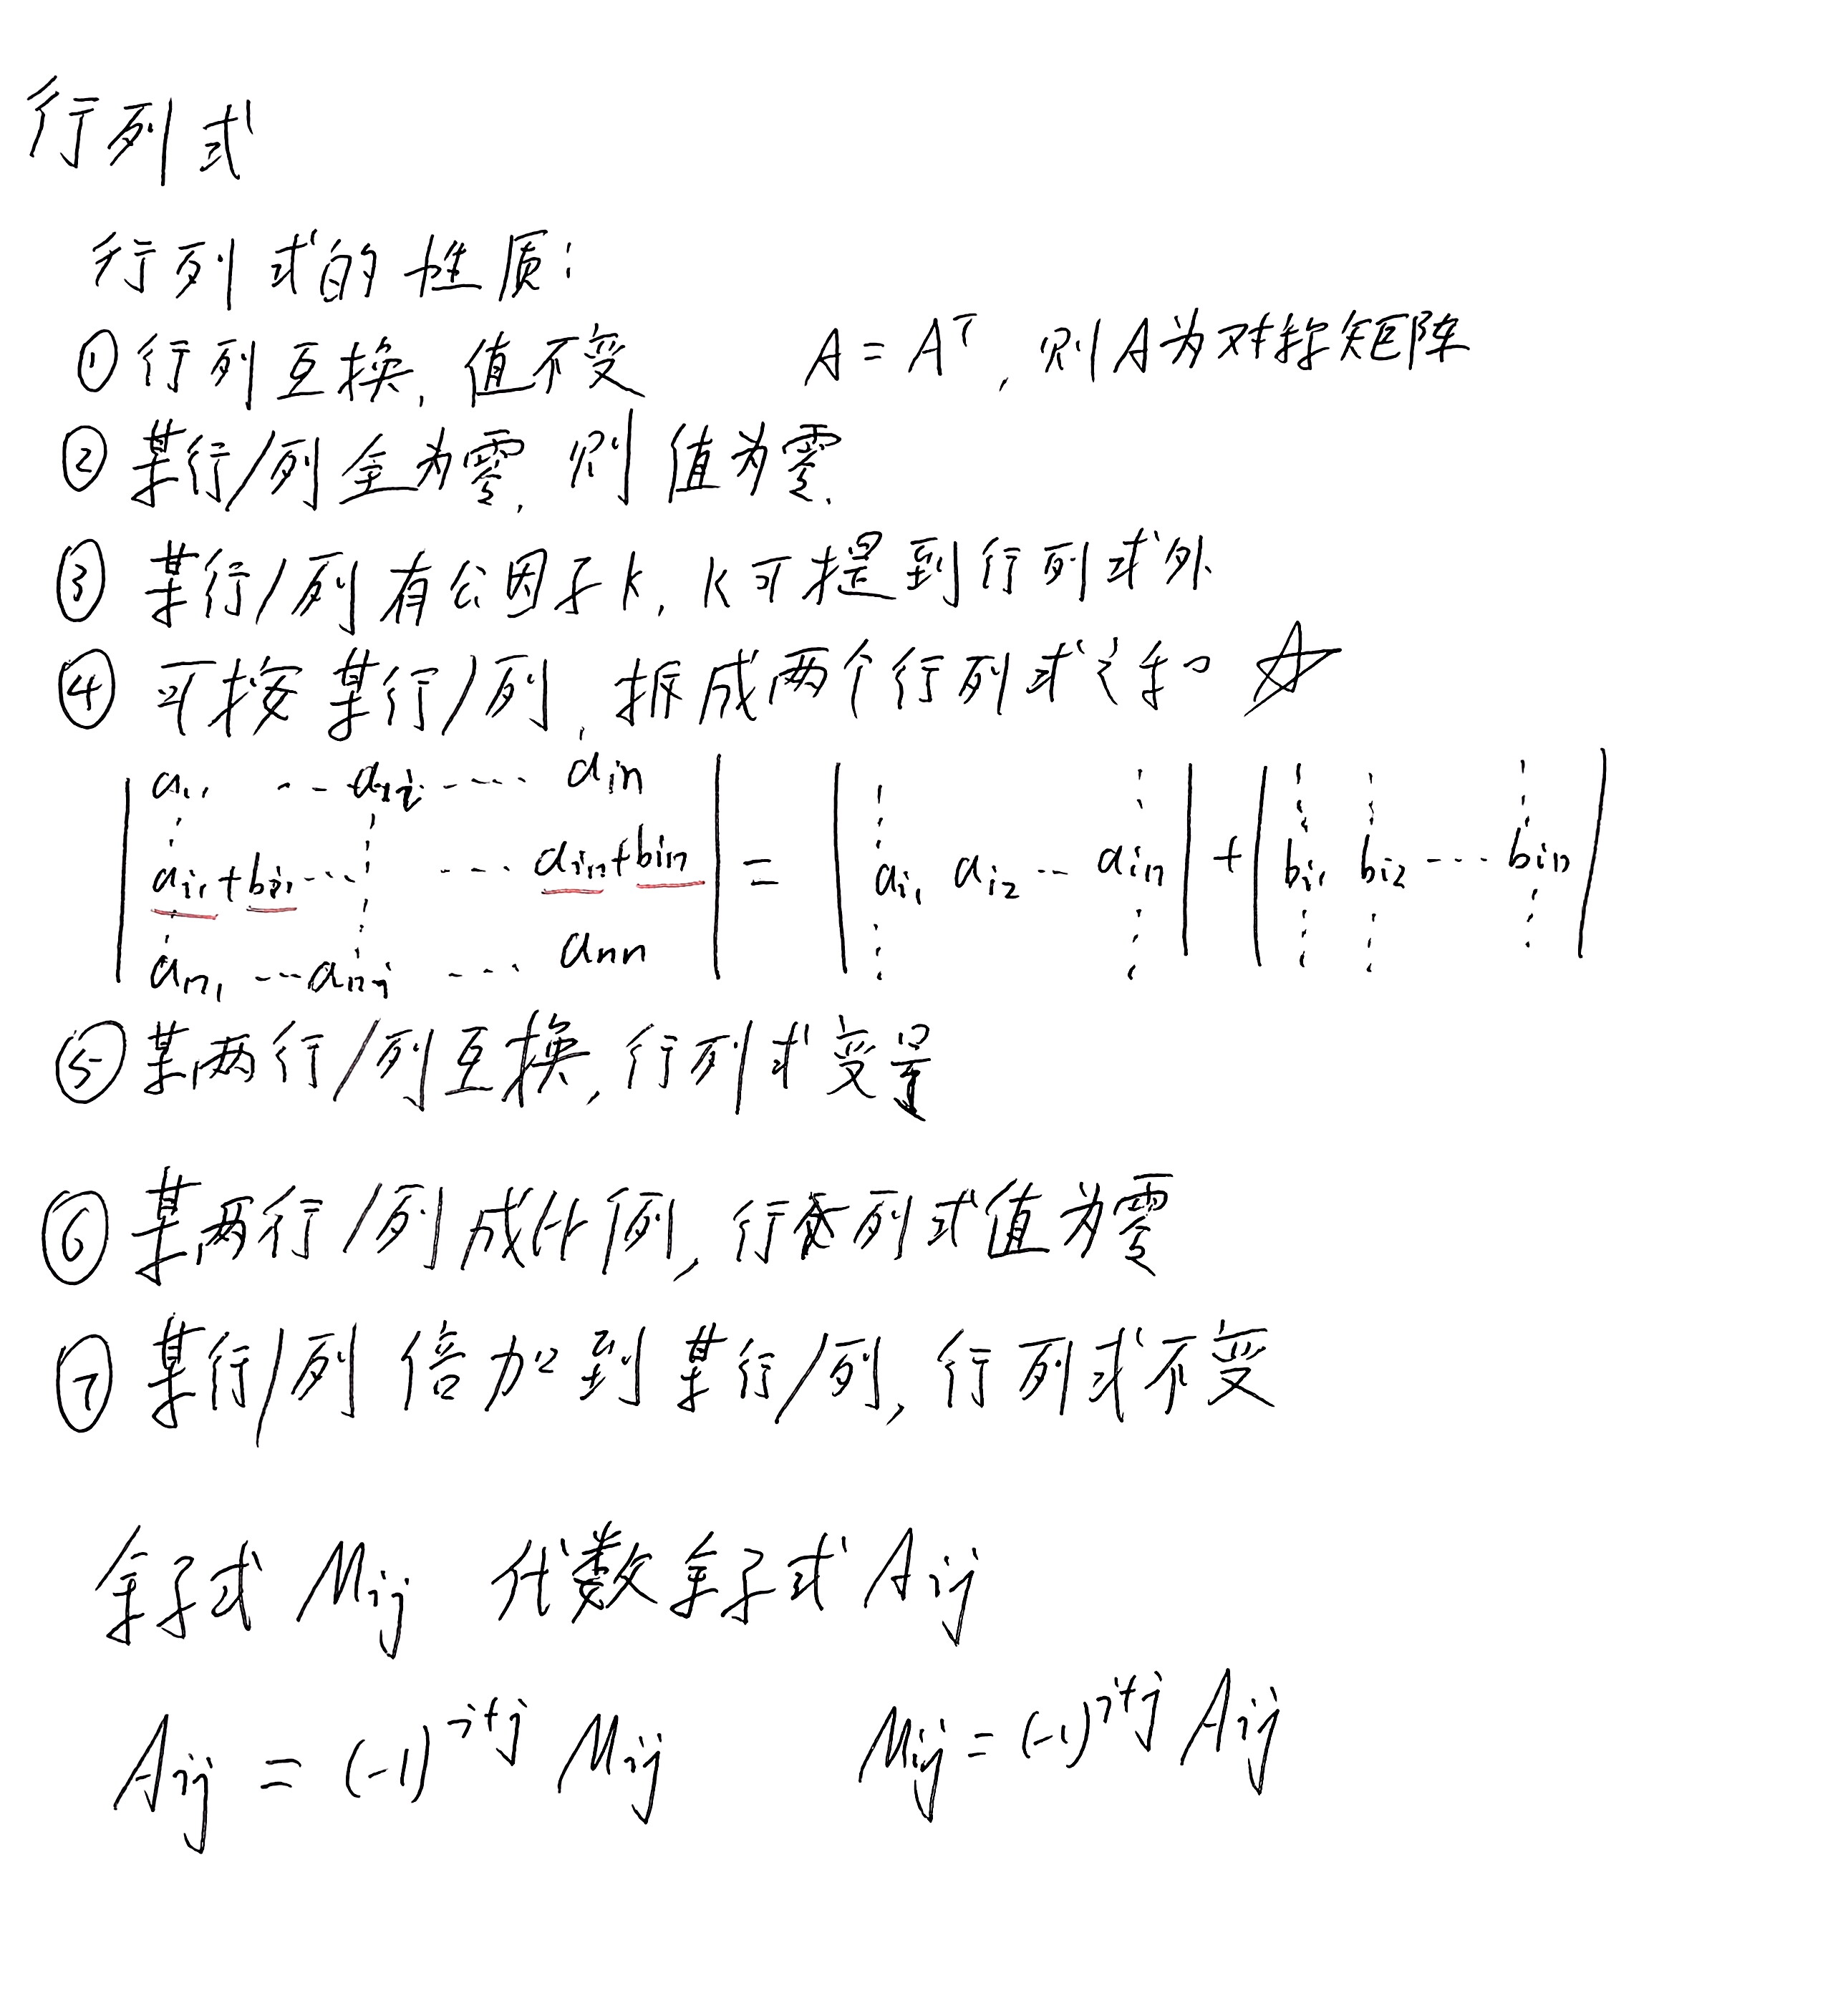 行列式
行列式的性质:
①行列互换,值不变 A = Aᵀ, 则A为对称矩阵
②某行/列全为零,则值为零.
③某行/列有公因子k,k可提到行列式外
④可按某行/列,拆成两个行列式之和 ☆
| a₁₁ ... a₁ᵢ ... a₁ₙ |
| aᵢ₁+bᵢ₁ ... ... aᵢₙ+bᵢₙ | = | aᵢ₁ aᵢ₂ ... aᵢₙ | + | bᵢ₁ bᵢ₂ ... bᵢₙ |
| aₙ₁ ... aₙᵢ ... aₙₙ |
⑤某两行/列互换,行列式变号
⑥某两行/列成比例,行列式值为零
⑦某行/列倍加到某行/列,行列式不变
余子式 Mij 代数余子式 Aij
Aij = (-1)^i+j Mij Mij = (-1)^i+j Aij